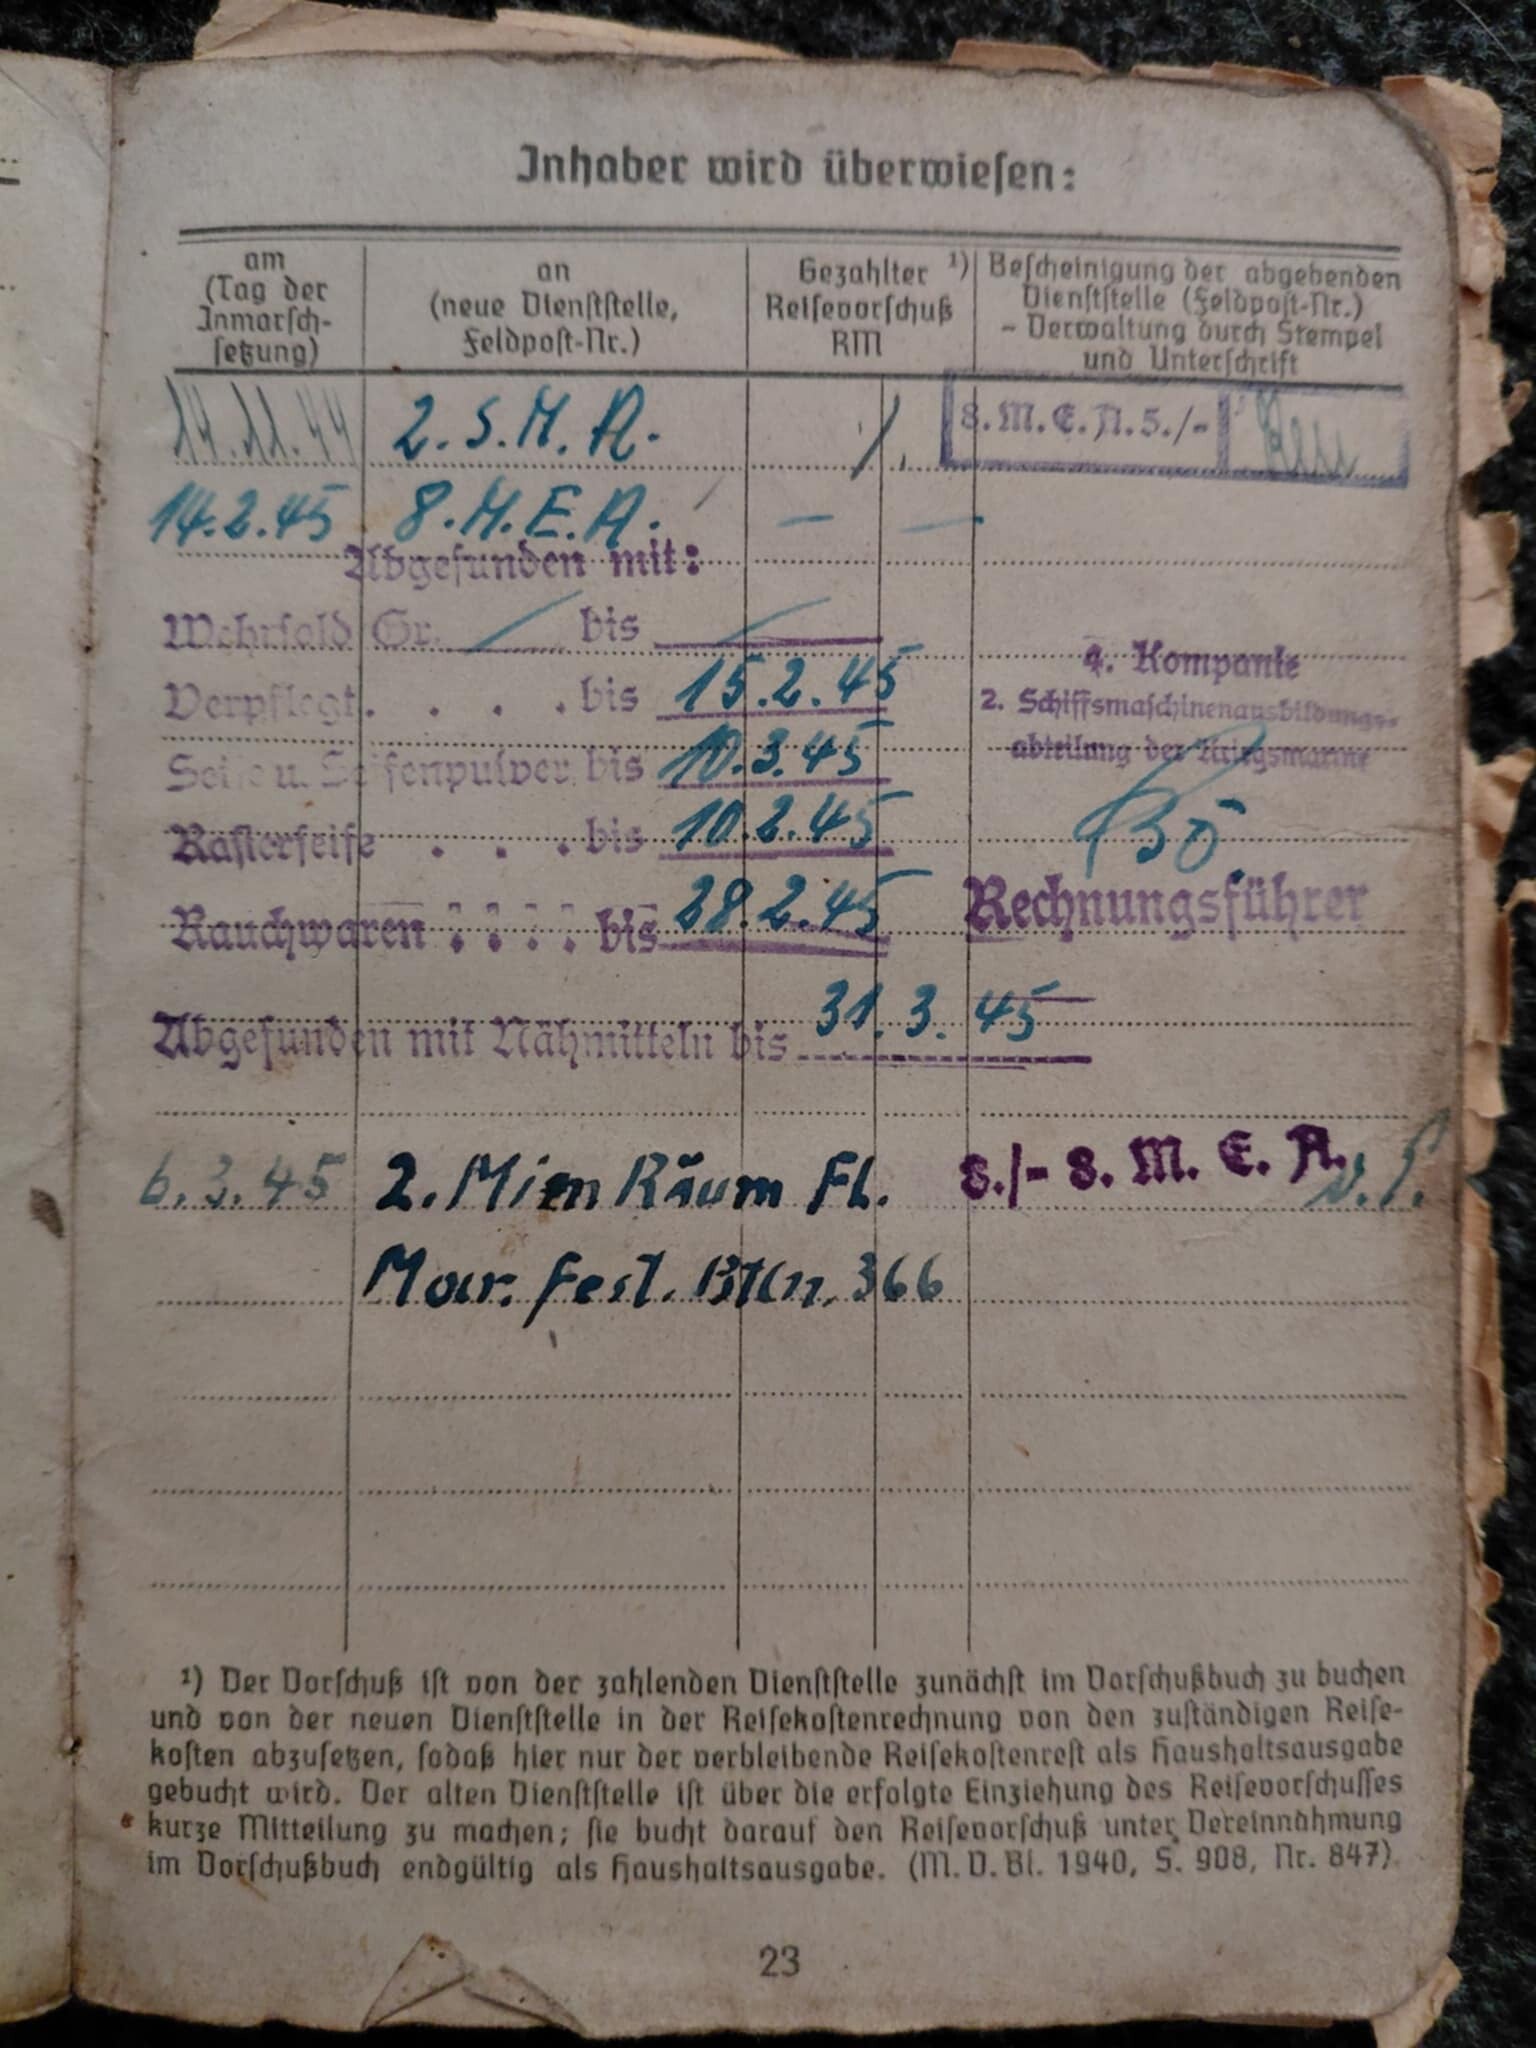 Inhaber wird überwiesen:
am
(Tag der
Inmarsch-
setzung)
an
(neue Dienststelle,
Feldpost-Nr.)
Gezahlter ¹)
Reisevorschuß
RM
Bescheinigung der abgebenden
Dienststelle (Feldpost-Nr.)
- Verwaltung durch Stempel
und Unterschrift
14.11.44 2. S. M. A. 8. M. E. A. 5./-
14.2.45 8. M. E. A. - -
Abgefunden mit:
Wehrsold Gr. bis
Verpflegt . . . . bis 15.2.45
Seife u. Seifenpulver bis 10.3.45
Rasierseife . . . bis 10.2.45
Rauchwaren . . . . bis 28.2.45
4. Kompanie
2. Schiffsmaschinenausbildungs-
abteilung der Kriegsmarine
Rechnungsführer
Abgefunden mit Nähmitteln bis 31.3.45
6.3.45 2. Mien Räum Fl. 8./- 8. M. E. A.
Mar. Fest. Btln. 366
¹) Der Vorschuß ist von der zahlenden Dienststelle zunächst im Vorschußbuch zu buchen
und von der neuen Dienststelle in der Reisekostenrechnung von den zuständigen Reise-
kosten abzusetzen, sodaß hier nur der verbleibende Reisekostenrest als Haushaltsausgabe
gebucht wird. Der alten Dienststelle ist über die erfolgte Einziehung des Reisevorschusses
kurze Mitteilung zu machen; sie bucht darauf den Reisevorschuß unter Vereinnahmung
im Vorschußbuch endgültig als Haushaltsausgabe. (M. D. Bl. 1940, S. 908, Nr. 847).
23